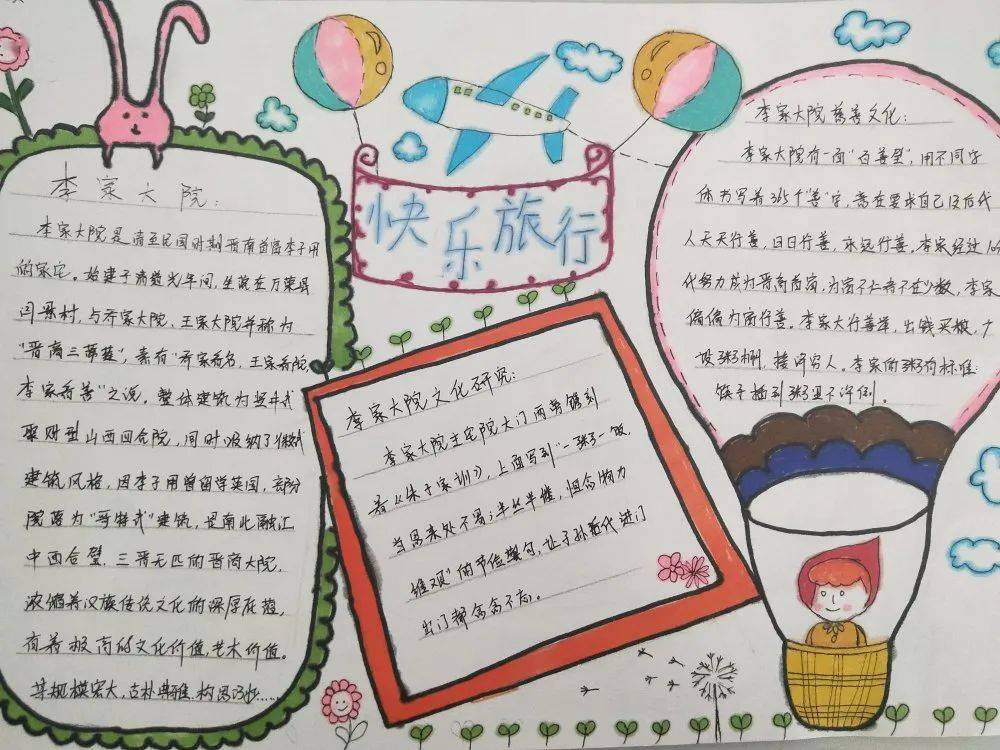 快乐旅行
李家大院:
李家大院是清至民国时期晋南首富李子用
的家宅。始建于清道光年间,坐落在万荣县
闫景村,与乔家大院、王家大院并称为
“晋商三蒂莲”,素有“乔家看名,王家看院,
李家看善”之说。整体建筑为竖井式
聚财型山西四合院,同时吸纳了徽式
建筑风格,因李子用曾留学英国,部分
院落为“哥特式”建筑,是南北融汇
中西合璧,三晋无匹的晋商大院,
浓缩着汉族传统文化的深厚底蕴,
有着极高的文化价值,艺术价值。
其规模宏大,古朴典雅,构思巧妙……
李家大院文化研究:
李家大院主宅院大门两旁镌刻
着《朱子家训》,上面写到“一粥一饭,
当思来处不易;半丝半缕,恒念物力
维艰”的节俭警句,让子孙后代进门
出门都念念不忘。
李家大院慈善文化:
李家大院有一面“百善壁”,用不同字
体书写着365个“善”字,意在要求自己及后代
人天天行善,日日行善,永远行善。李家经过
代努力成为晋商首富,为富不仁者不在少数,李家
偏偏为富行善。李家大行善举,出钱买粮,广
设粥棚,接济穷人。李家的粥的标准:
筷子插到粥里不许倒。